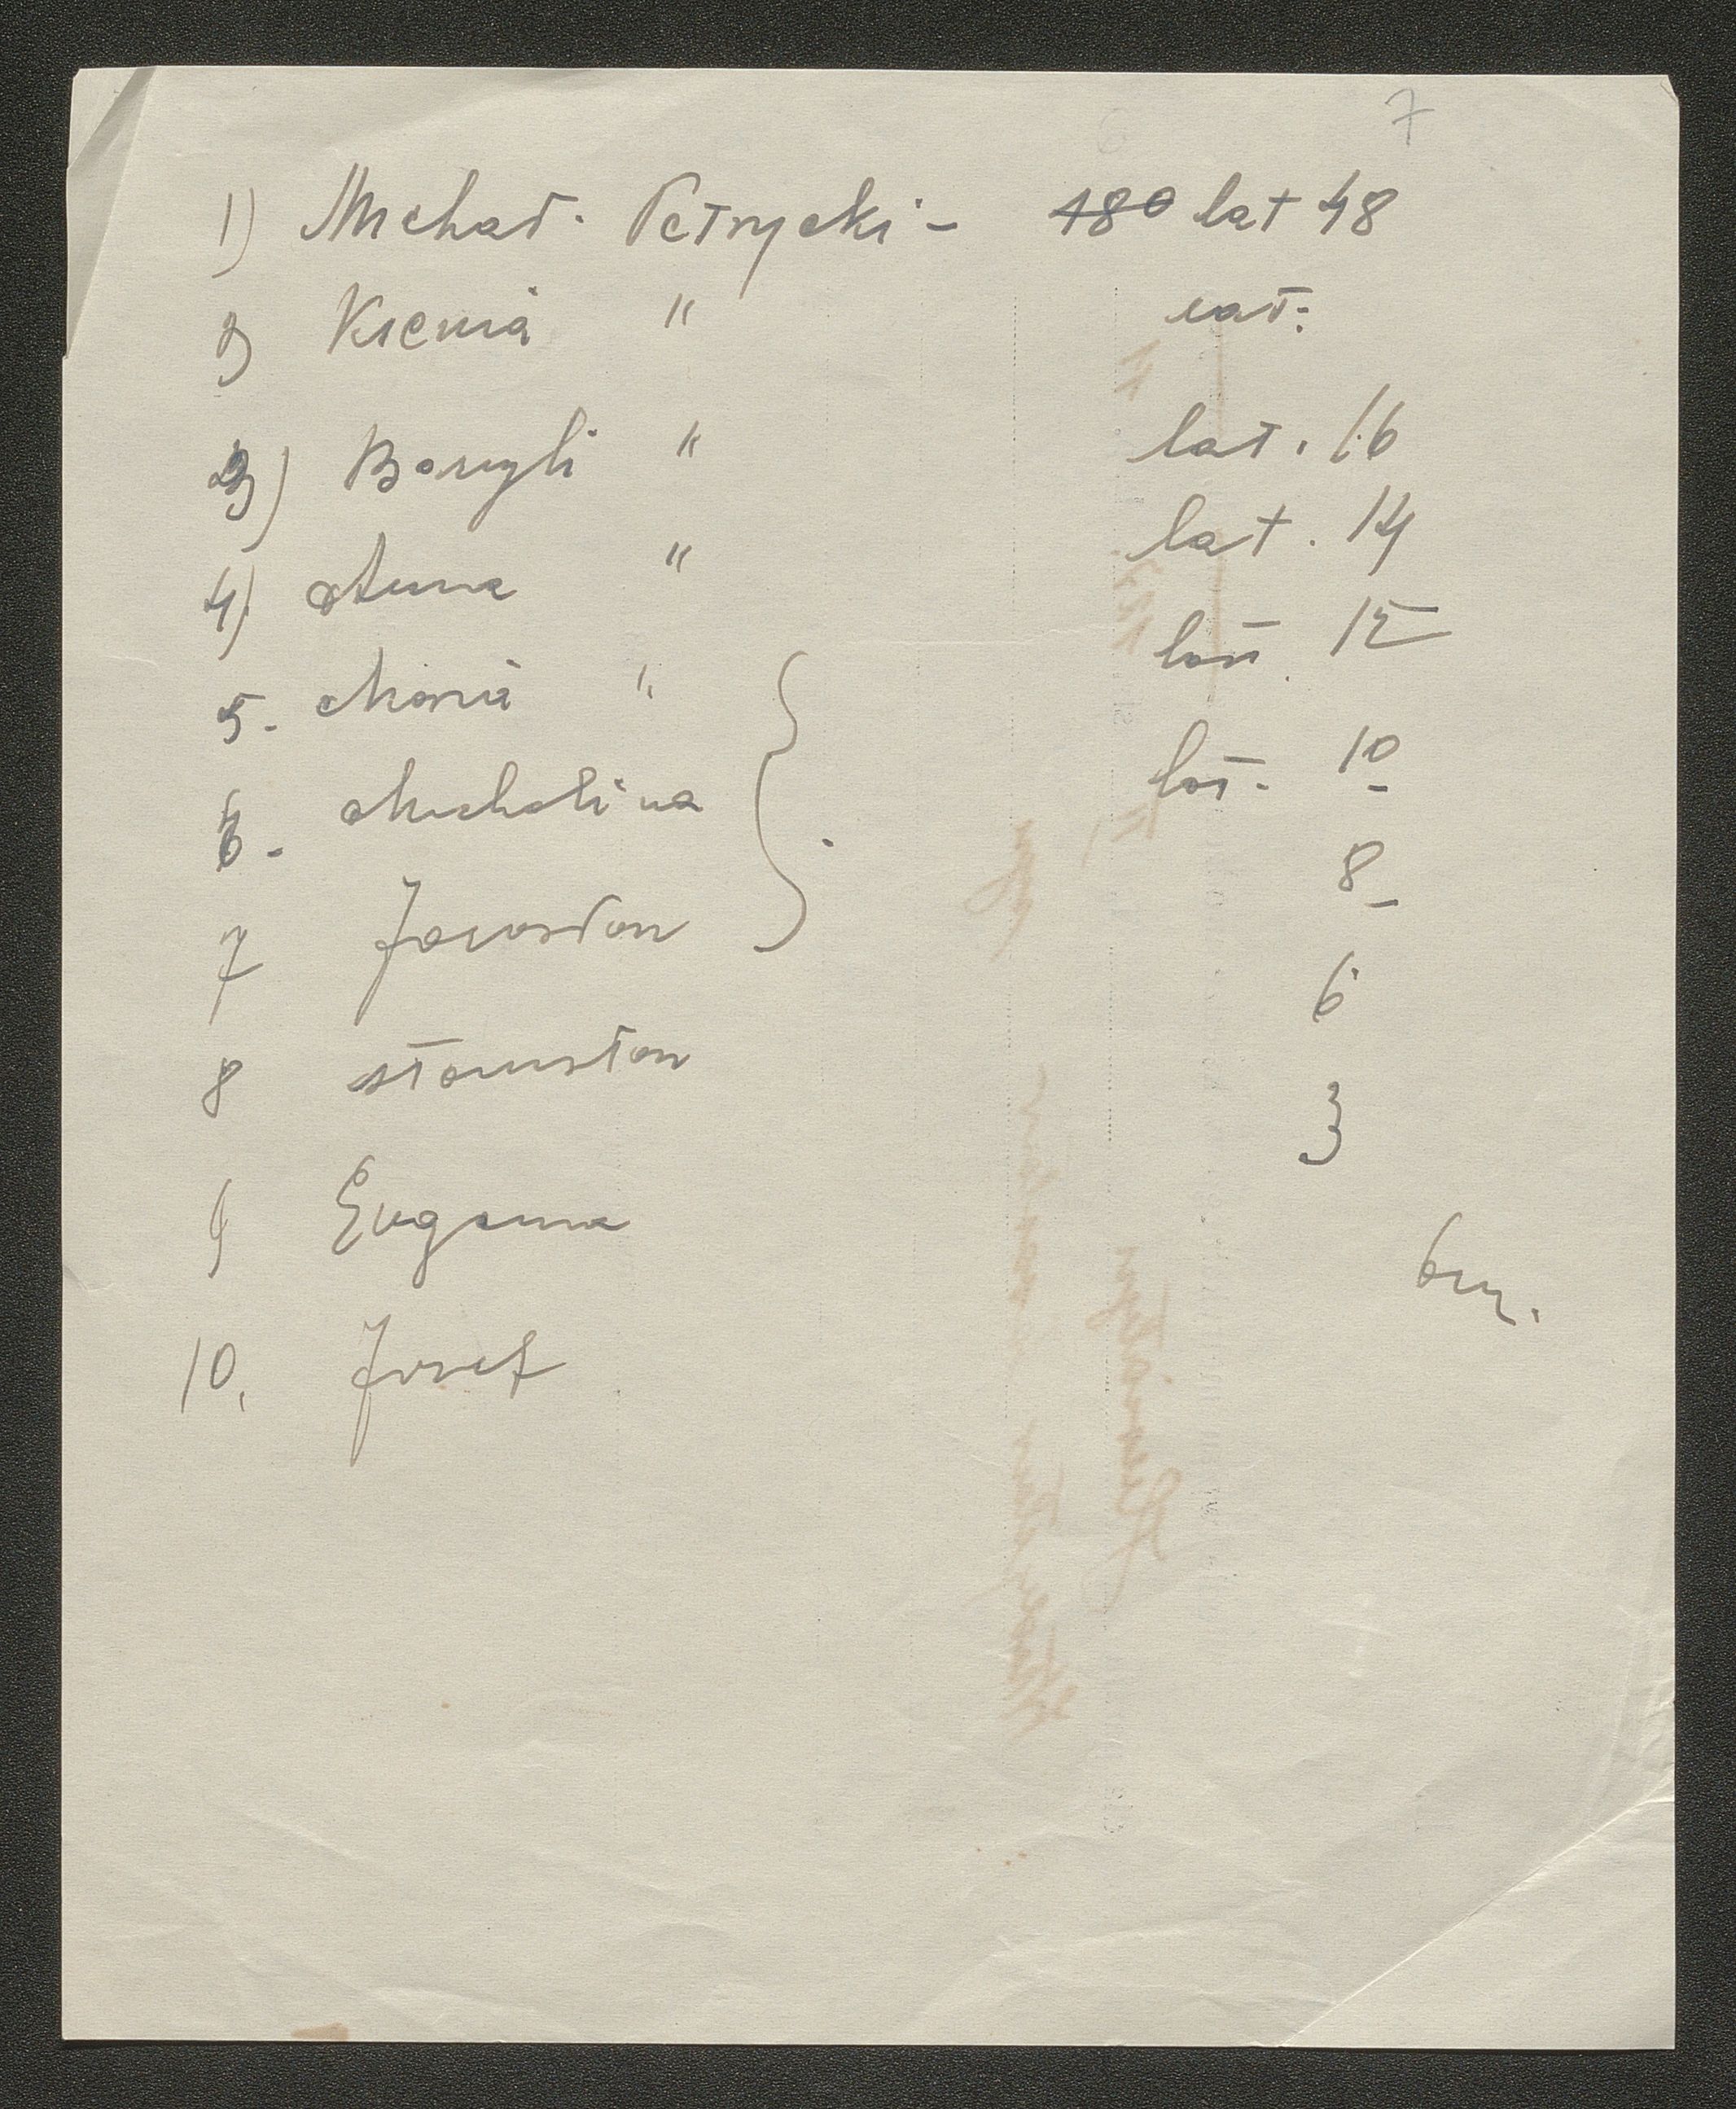 7
1) Michał. Petrycki - 480 lat 48
2) Ksenia " lat:
3) Bazyli " lat. 16
4) Anna " lat. 14
5. Maria " lat. 12
6. Michalina lat. 10
7 Jarosław 8
8 Stanisław 6
9 Eugenia 3
10. Josef 6 m.